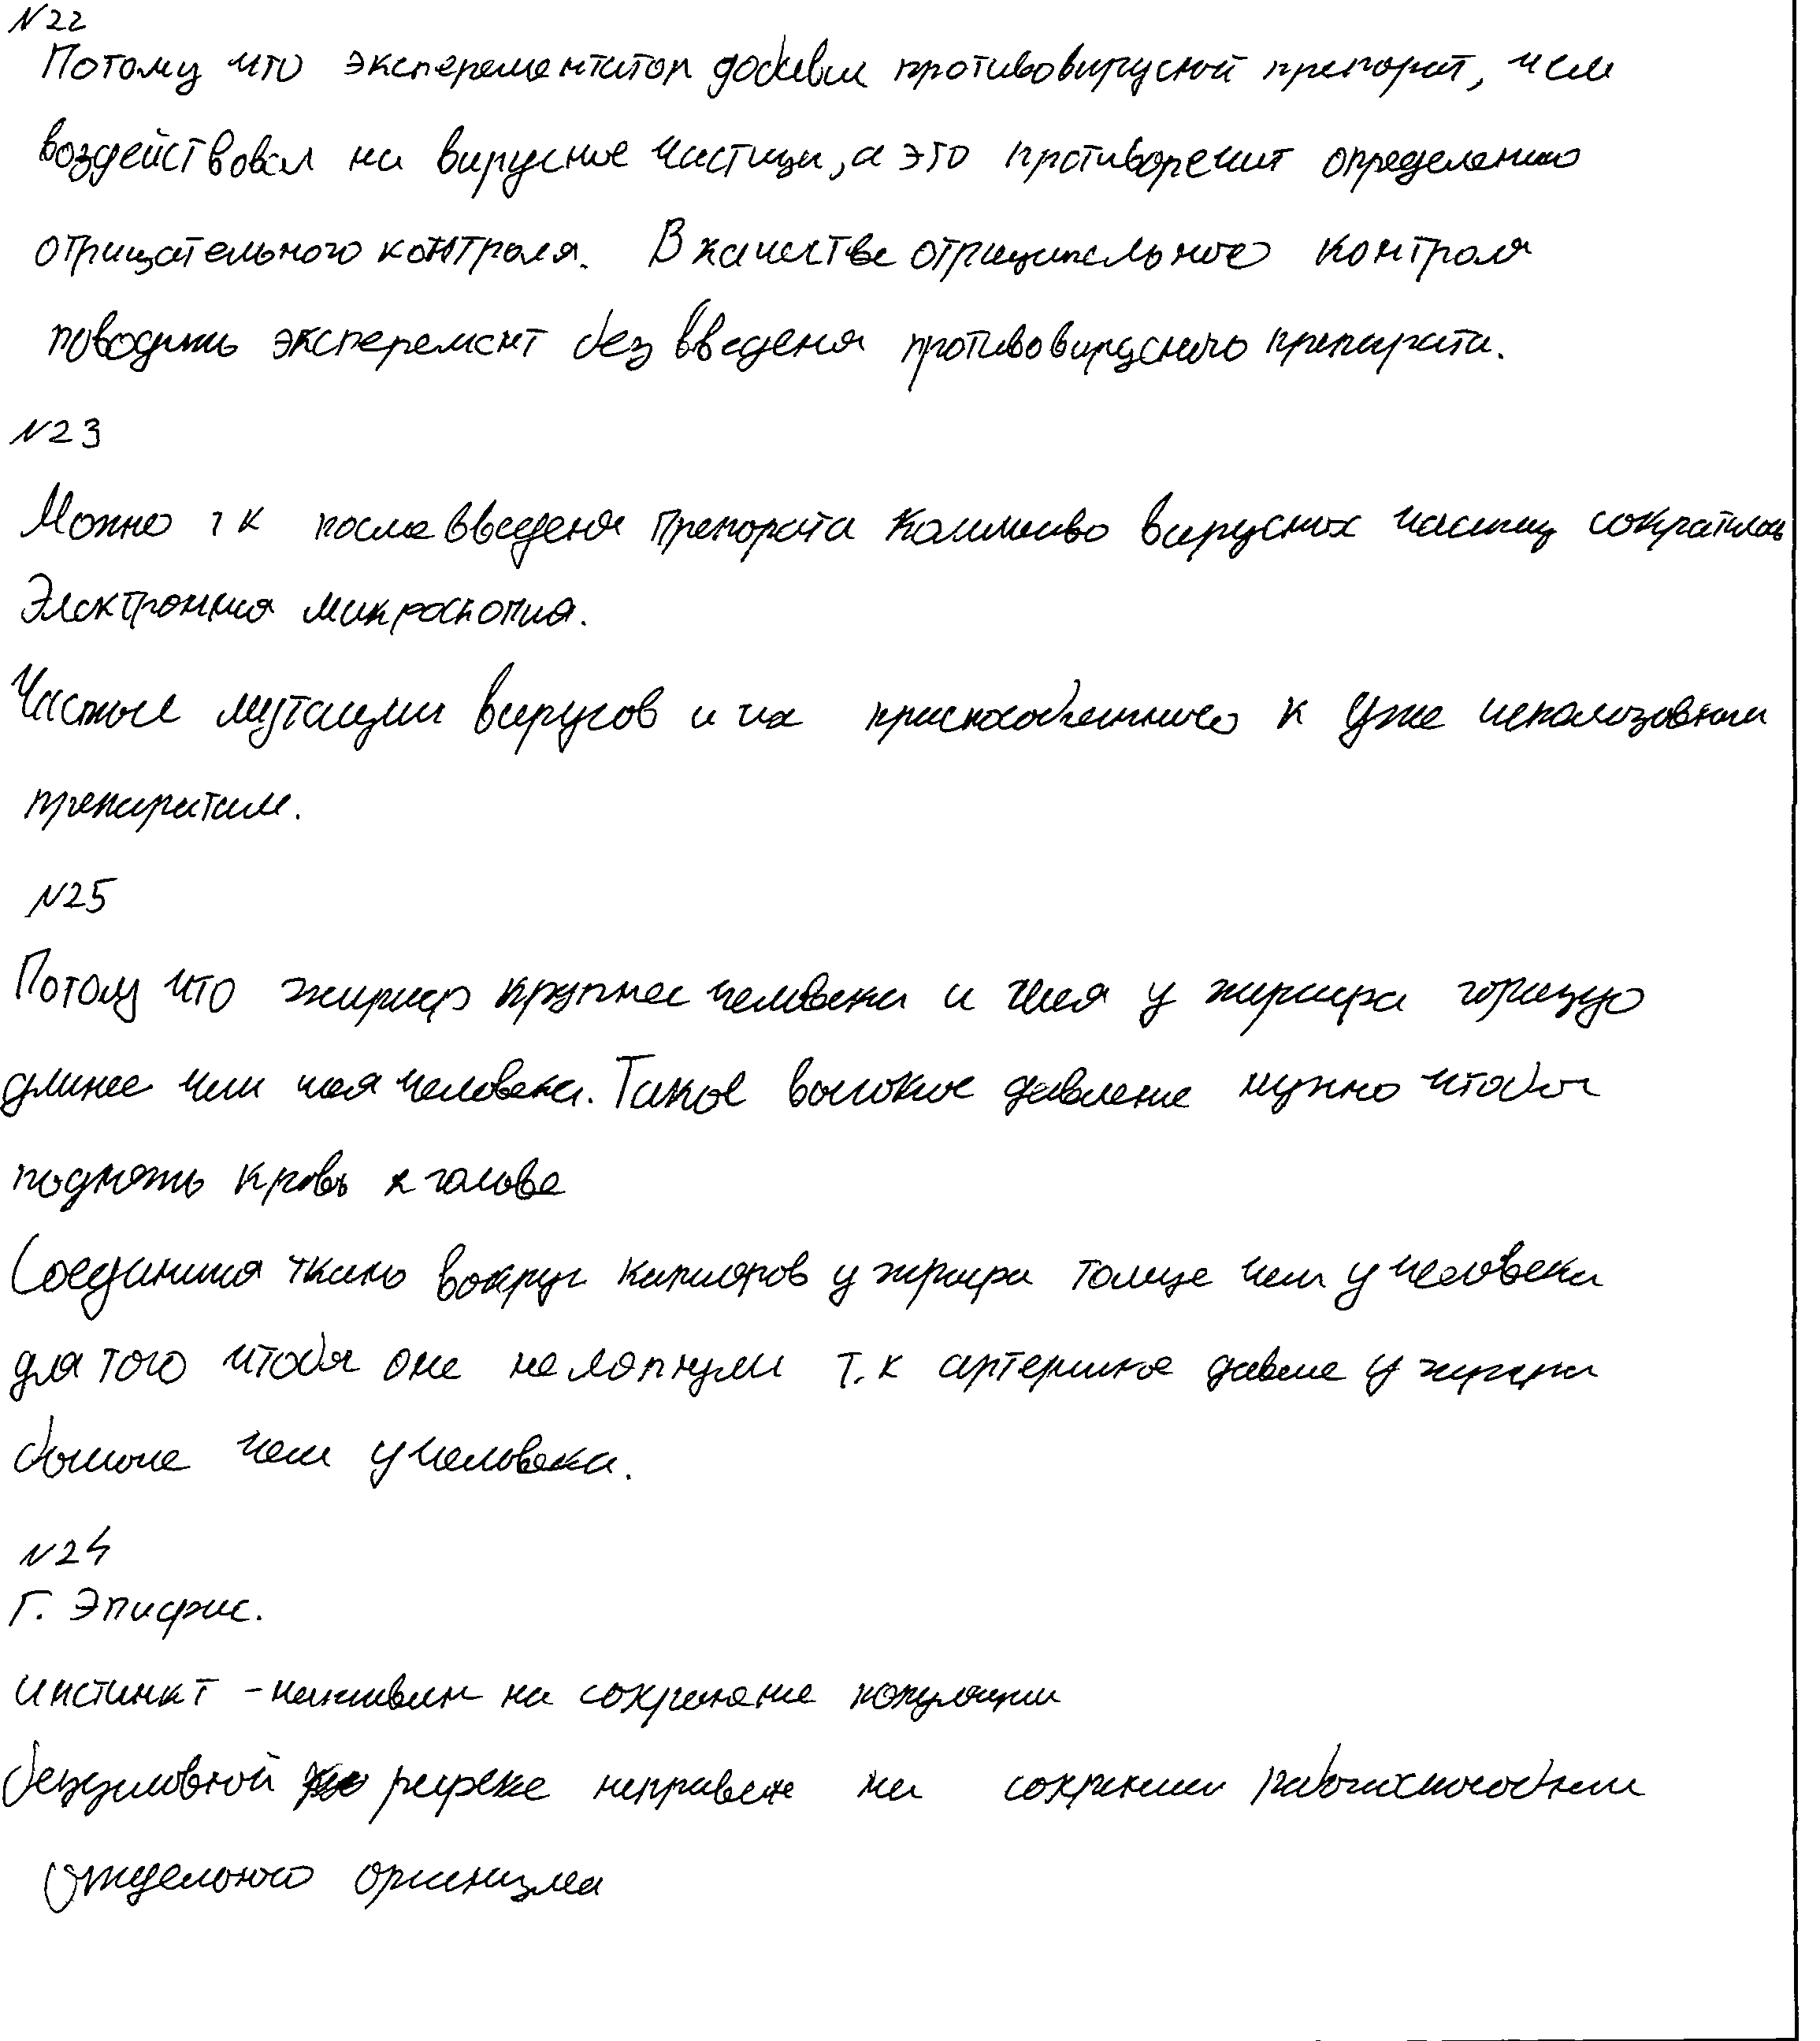 N22
Потому что эксперементатор добавил противовирусный препарат, чем
воздействовал на вирусные частицы, а это противоречит определению
отрицательного контроля. В качестве отрицательного контроля
поводить эксперемент без введеня противовирусного препарата.
N23
Можно т к после введеня препората количиво вирусных частиц сократилось
Электронная микроскопия.
Частые мутации вирусов и их к уже использованым
препаратам.
N25
Потому что жираф крупнее человека и шея у жирафа гораздо
длинее чем шея человека. Такое высокое давление нужно чтобы
поднять кровь к голове
Соединиая ткань вокруг капиляров у жирафа толще чем у человека
для того чтобы оне не лопнули т.к артериное давлие у жирафа
больше чем у человека.
N24
Г. Эпифис.
инстинкт - на сохранение популяции
безусловной рефлекс направлен на работаспособности
отдельного организма